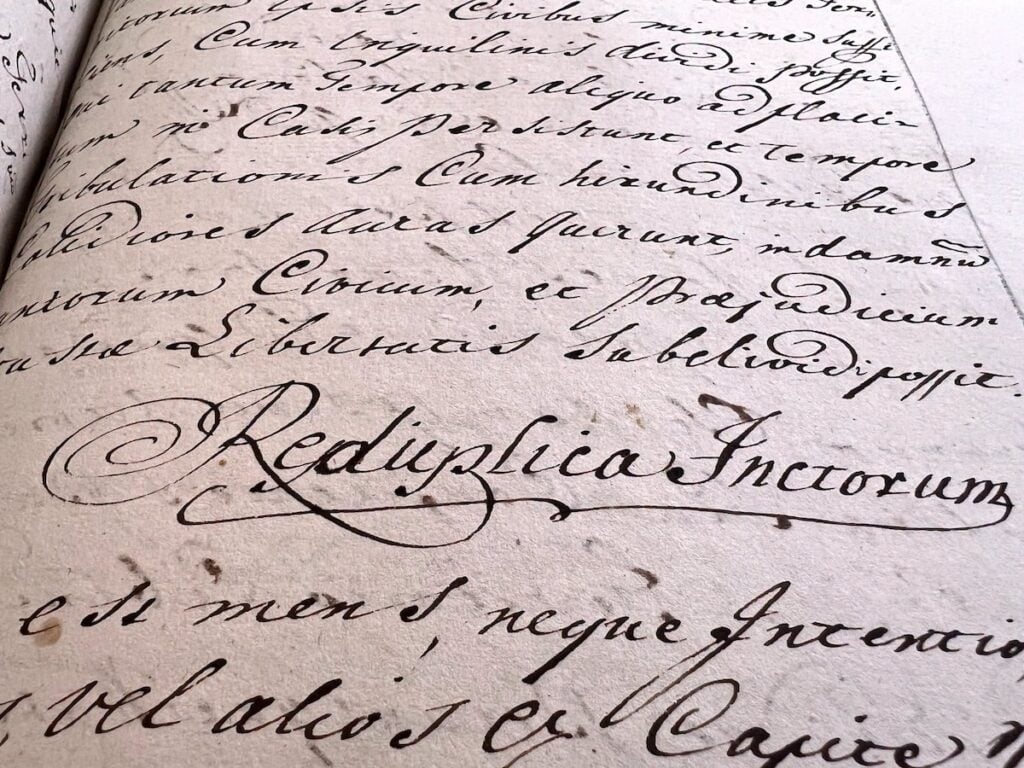 ipsis Civibus minime suffi
iens, Cum Inquilinis dividi possit,
qui tantum tempore aliquo ad placi-
tum in Casis persistunt, et tempore
tribulationis Cum hirundinibus
Calidiores auras querunt, in damnū
Civicum, et præjudicium
Libertatis subelividi possit.
Reduplica Inctorum
est mens, neque Intentio
vel alios ex Capite